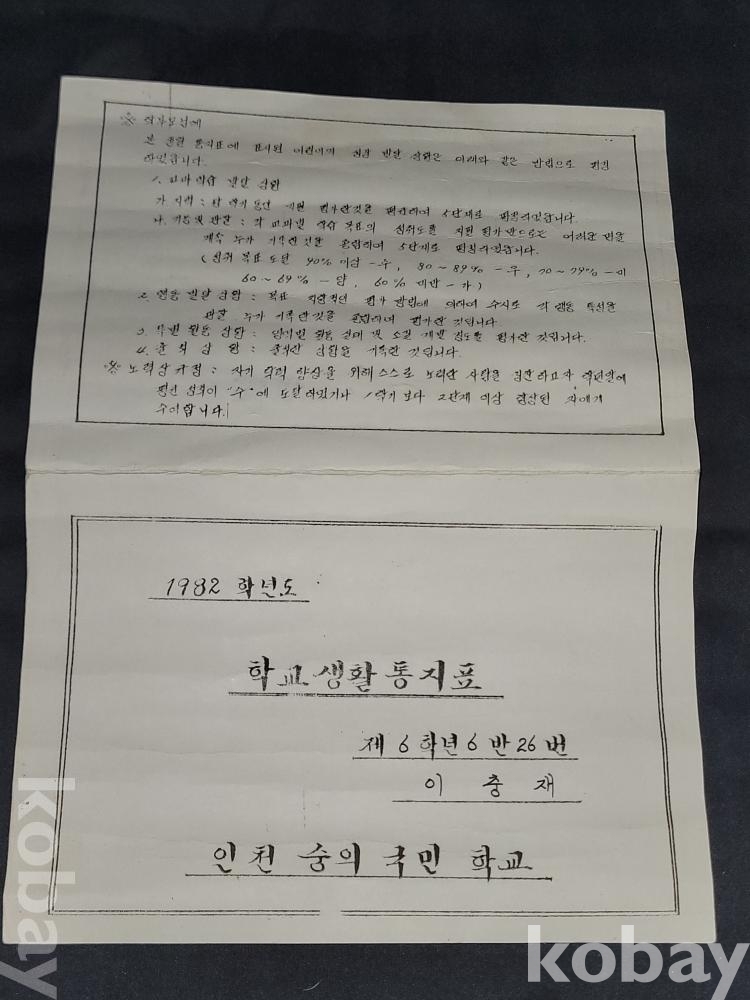 ※ 학부모님께
본 생활 통지표에 표시된 어린이의 성장 발달 상황은 아래와 같은 방법으로 평정
하였습니다.
1. 교과학습 발달 상황
가. 지력 : 한 학기동안 지필 평가한것을 평균하여 5단계로 평정하였습니다.
나. 기능 및 관찰 : 각 교과별 학습 목표의 성취도를 지필 평가만으로는 어려운 면을
계속 누가 기록한 것을 종합하여 5단계로 평정하였습니다.
(성취 목표 도달 90% 이상 - 수, 80 ~ 89% - 우, 70 ~ 79% - 미
60 ~ 69% - 양, 60% 미만 - 가)
2. 행동 발달 상황 : 목표 지향적인 평가 방법에 의하여 수시로 각 행동 특성을
관찰 누가 기록한 것을 종합하여 평가한 것입니다.
3. 특별 활동 상황 : 영역별 활동 실태 및 소질 계발 정도를 평가한 것입니다.
4. 출석 상황 : 출석한 상황을 기록한 것입니다.
※ 노력상 규정 : 자기 학력 향상을 위해 스스로 노력한 사람을 칭찬하고자 학년말에
평균 성적이 "수"에 도달하였거나 1학기 보다 2단계 이상 향상된 자에게
수여합니다.
1982 학년도
학교생활통지표
제 6 학년 6 반 26 번
이 충 재
인천 숭의 국민 학교
kobay
kobay